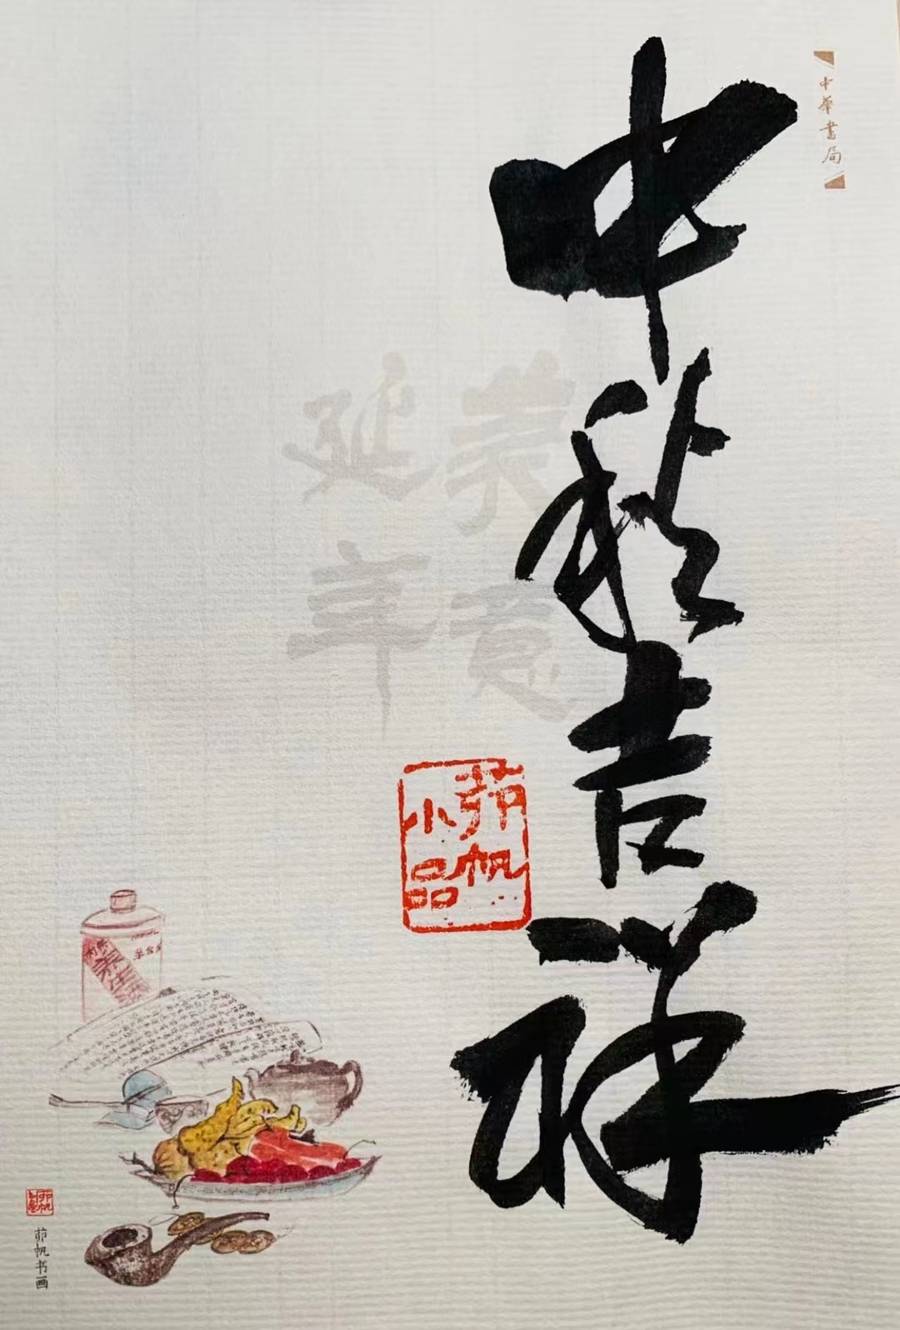 中華書局
中秋吉祥
美意
延年
茆帆
小品
茆帆书画